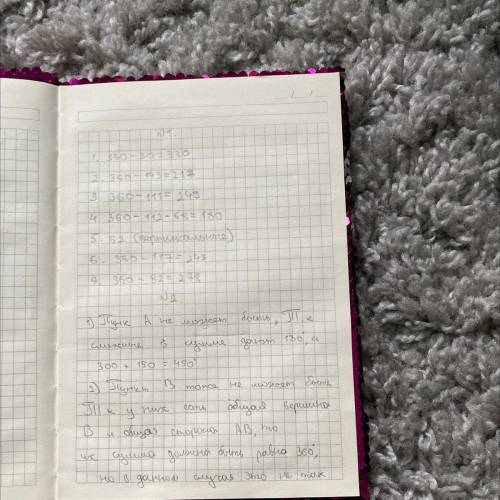 №1.
1. 360-30=330
2. 360-143=217
3. 360-111=249
4. 360-112-68=180
5. 52 (вертикальные)
6. 360-117=243
360-82=278
№2.
1) Пунк А не может быть, Т к
смежные в сумме дают 180, а
300 + 150 = 450°
2) Пункт В тоже не может быть
Т к у них есть общая вершина
В и общая сторона АВ, то
их сумма должна быть равна 360°,
но в данном случае это не так